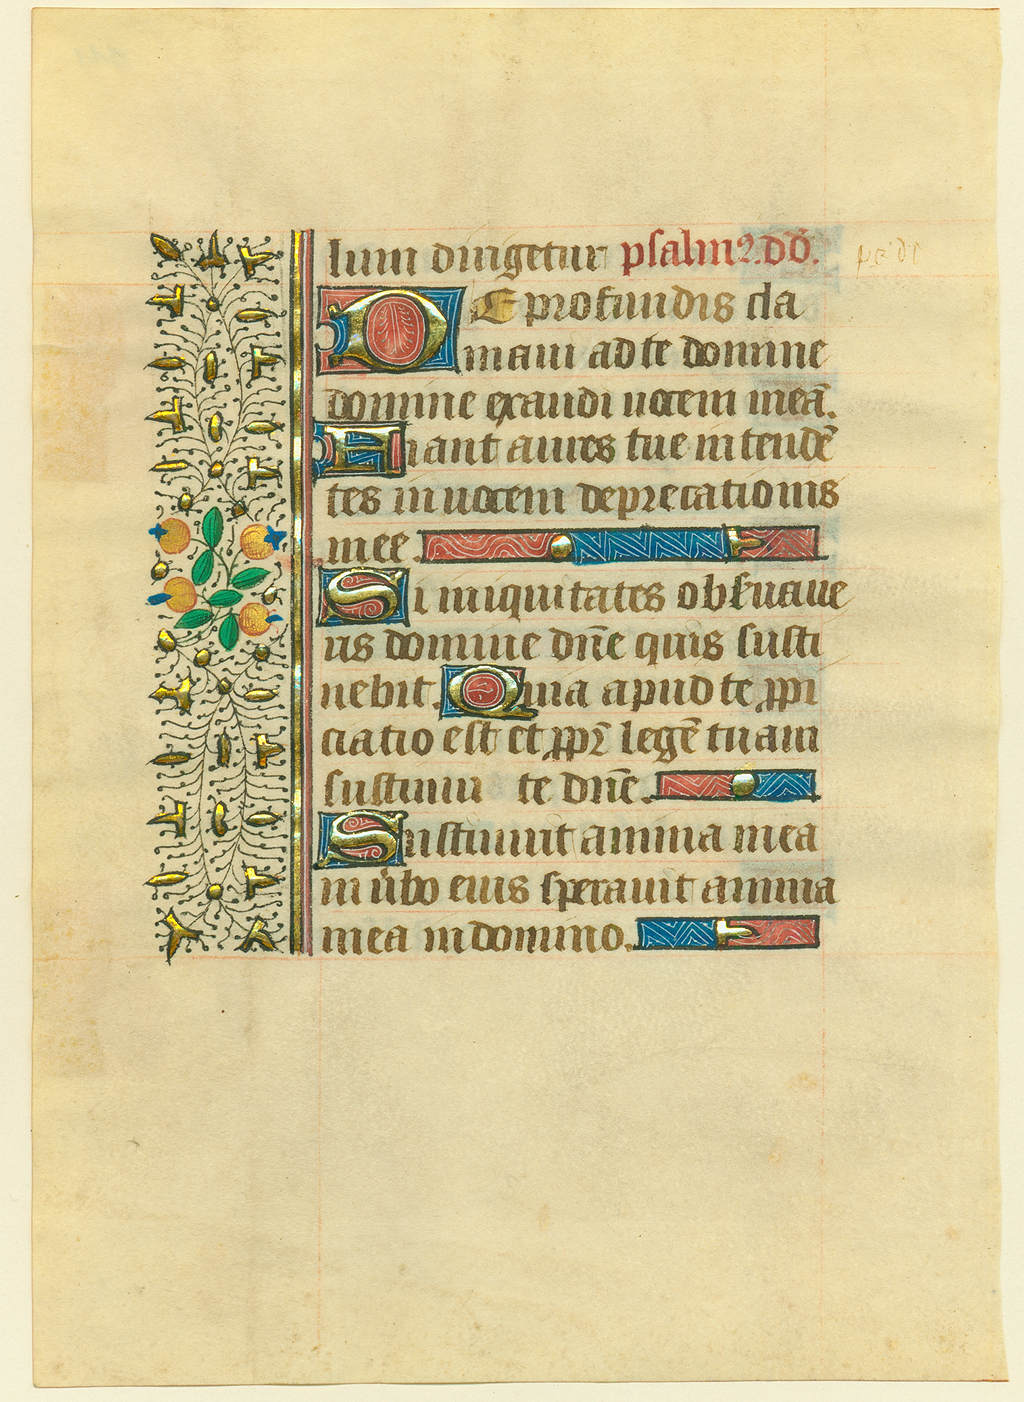 lium dirigetur psalmꝰ. dd̄.
DE profundis cla
maui ad te domine
domine exaudi uocem meā.
Fiant aures tue intendē
tes in uocem deprecationis
mee.
Si iniquitates obseruaue
ris domine dn̄e quis susti
nebit. Quia apud te ꝓpi
ciatio est et ꝓpꝛ̄ legē tuam
sustinui te dn̄e.
Sustinuit anima mea
in ub̄o eius sperauit anima
mea in domino.